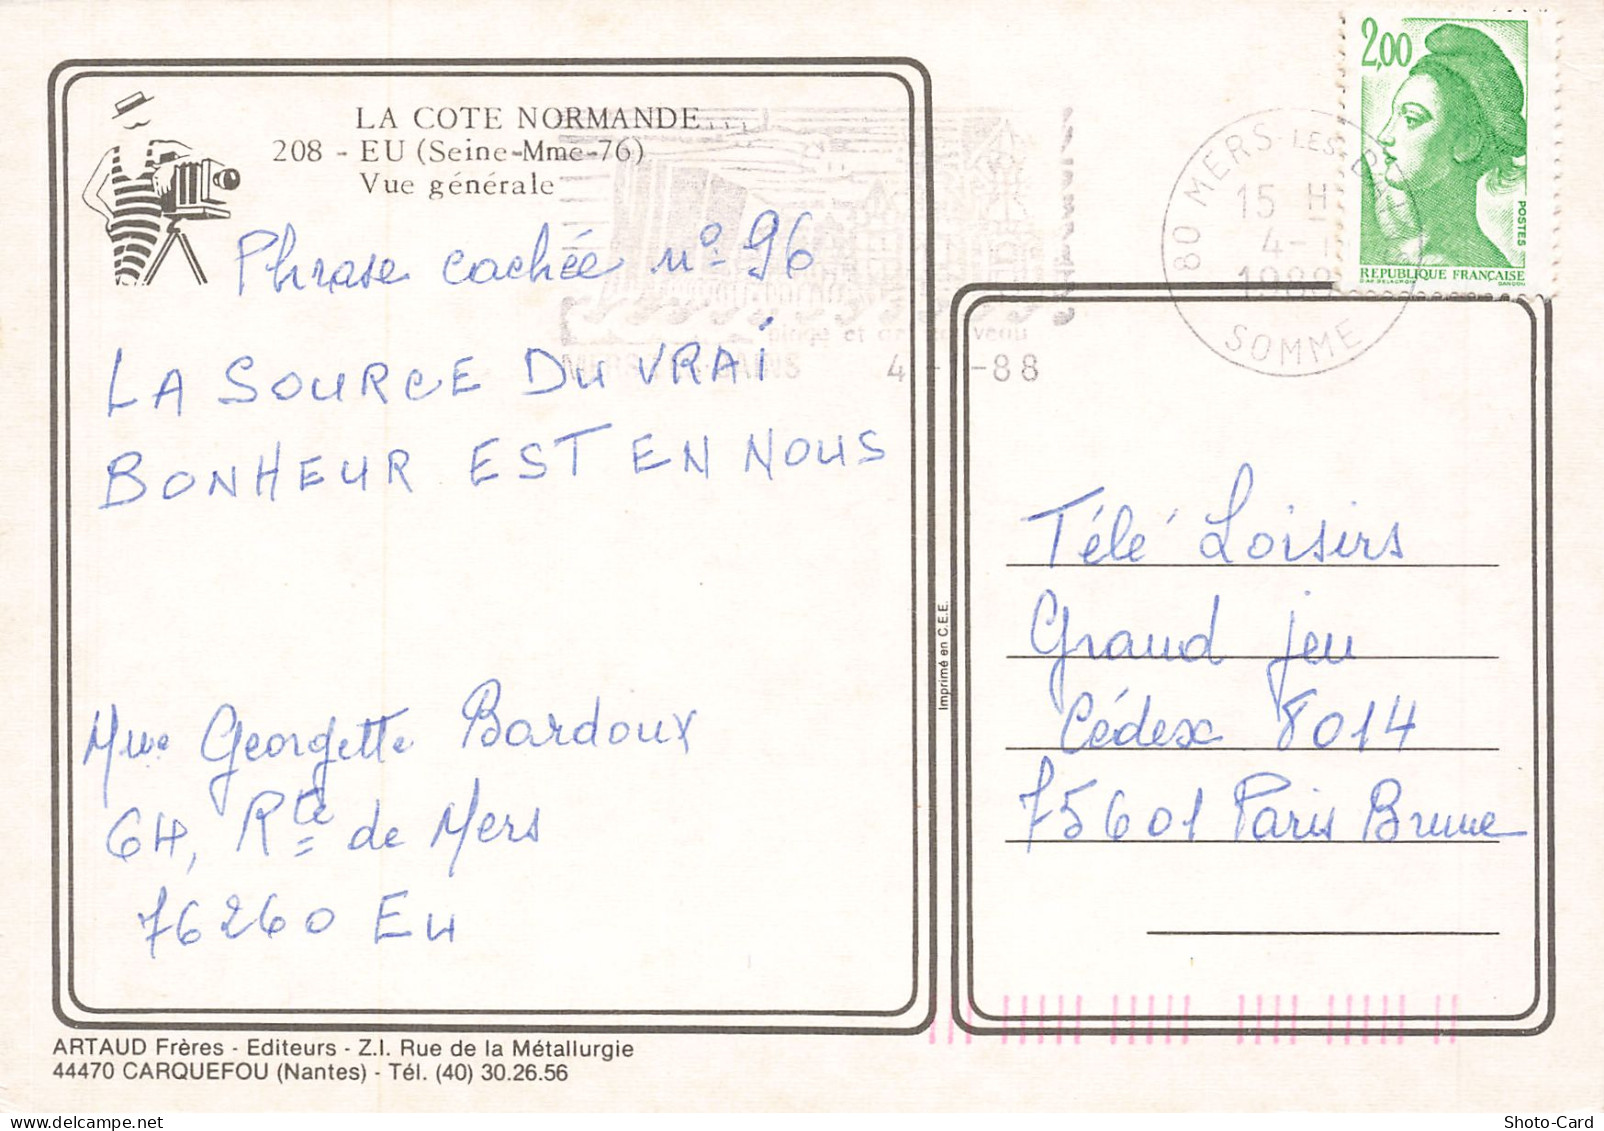 LA COTE NORMANDE...
208 - EU (Seine-Mme-76)
Vue générale
Phrase cachée n° 96
LA SOURCE DU VRAI
BONHEUR EST EN NOUS
Mme Georgette Bardoux
64, Rte de Mers
76260 Eu
ARTAUD Frères - Editeurs - Z.I. Rue de la Métallurgie
44470 CARQUEFOU (Nantes) - Tél. (40) 30.26.56
Imprimé en C.E.E.
2,00
POSTES
REPUBLIQUE FRANÇAISE
D'AP. DELACROIX GANDON
80 MERS LES BAINS
15 H
4-1
1988
SOMME
plage et
MERS LES BAINS 4 - -88
Télé Loisirs
Grand jeu
Cédex 8014
75601 Paris Brune
Shoto-Card